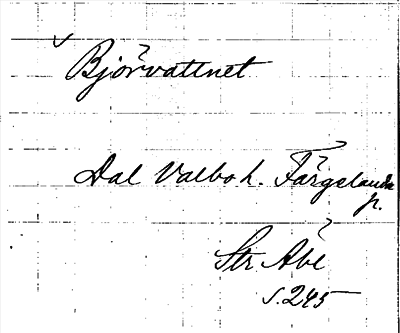 Björvattnet
Dal Valbo h. Färgelanda
p.
Str Abl
s. 245